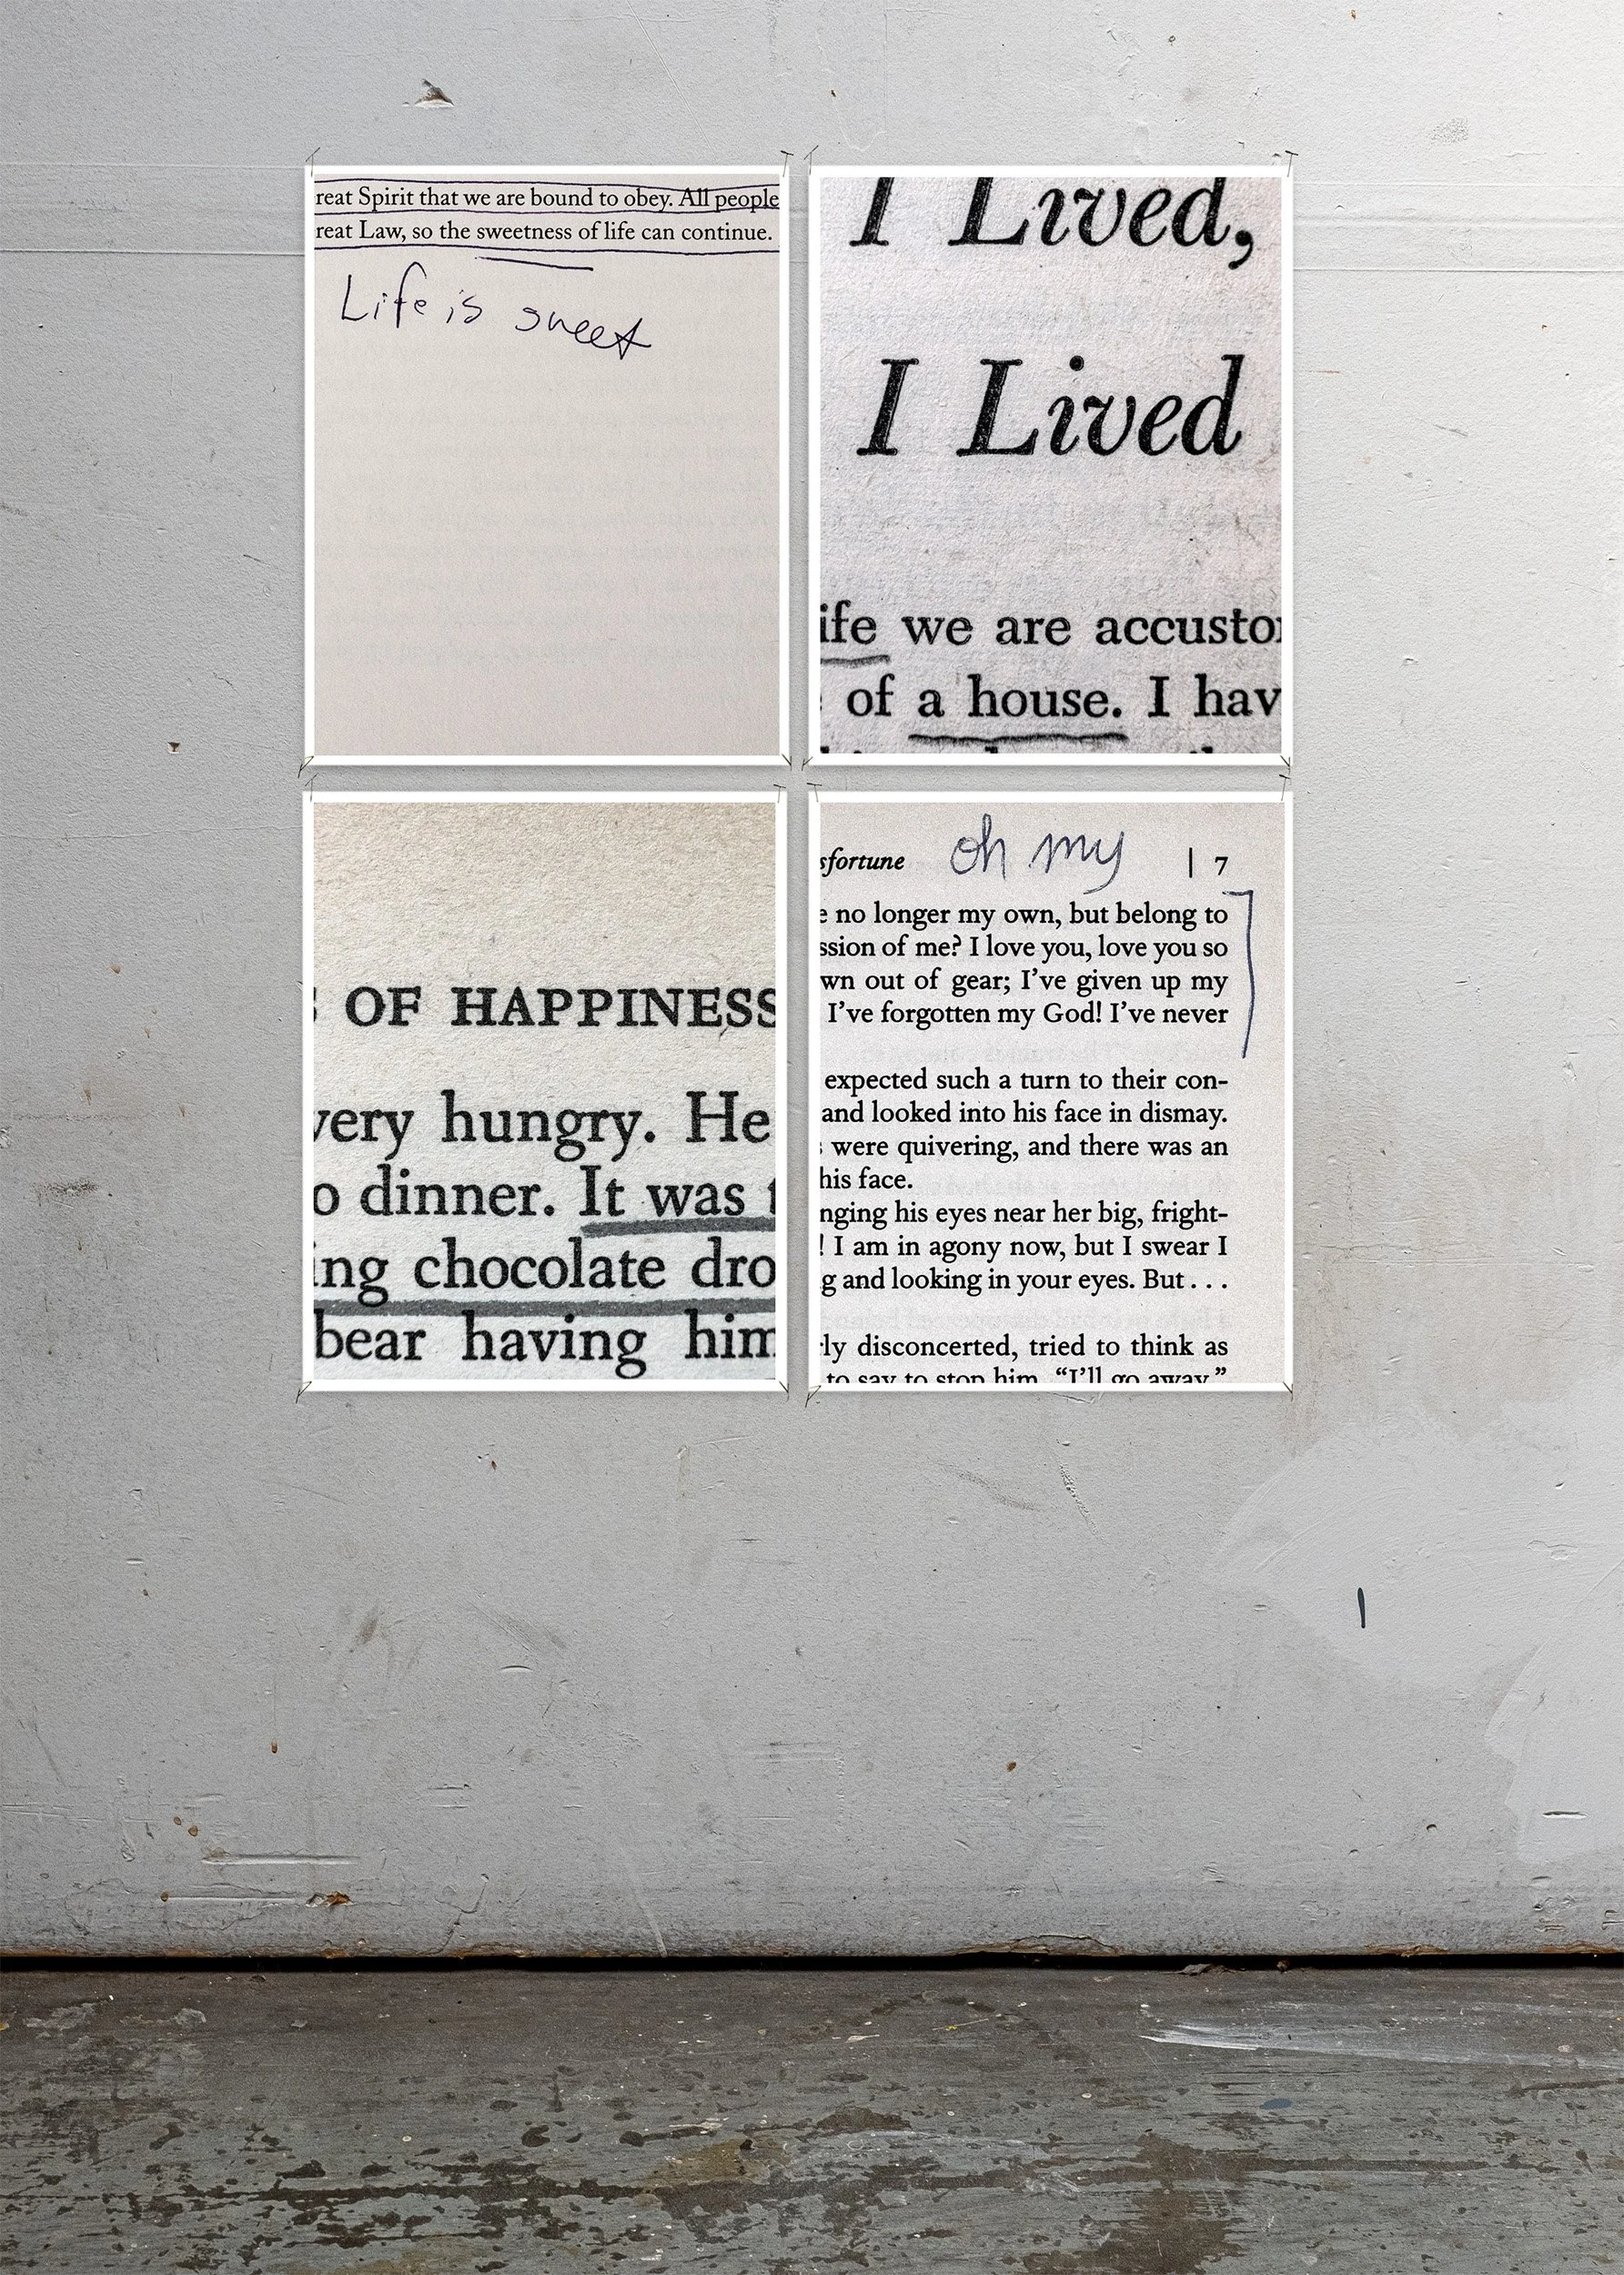 reat Spirit that we are bound to obey. All people
reat Law, so the sweetness of life can continue.
Life is sweet
I Lived,
I Lived
ife we are accusto
of a house. I hav
OF HAPPINESS
very hungry. He
o dinner. It was
ing chocolate dro
bear having him
sfortune oh my | 7
e no longer my own, but belong to
ssion of me? I love you, love you so
wn out of gear; I've given up my
I've forgotten my God! I've never
expected such a turn to their con-
and looked into his face in dismay.
were quivering, and there was an
his face.
nging his eyes near her big, fright-
! I am in agony now, but I swear I
g and looking in your eyes. But . . .
rly disconcerted, tried to think as
to say to stop him. “I'll go away.”